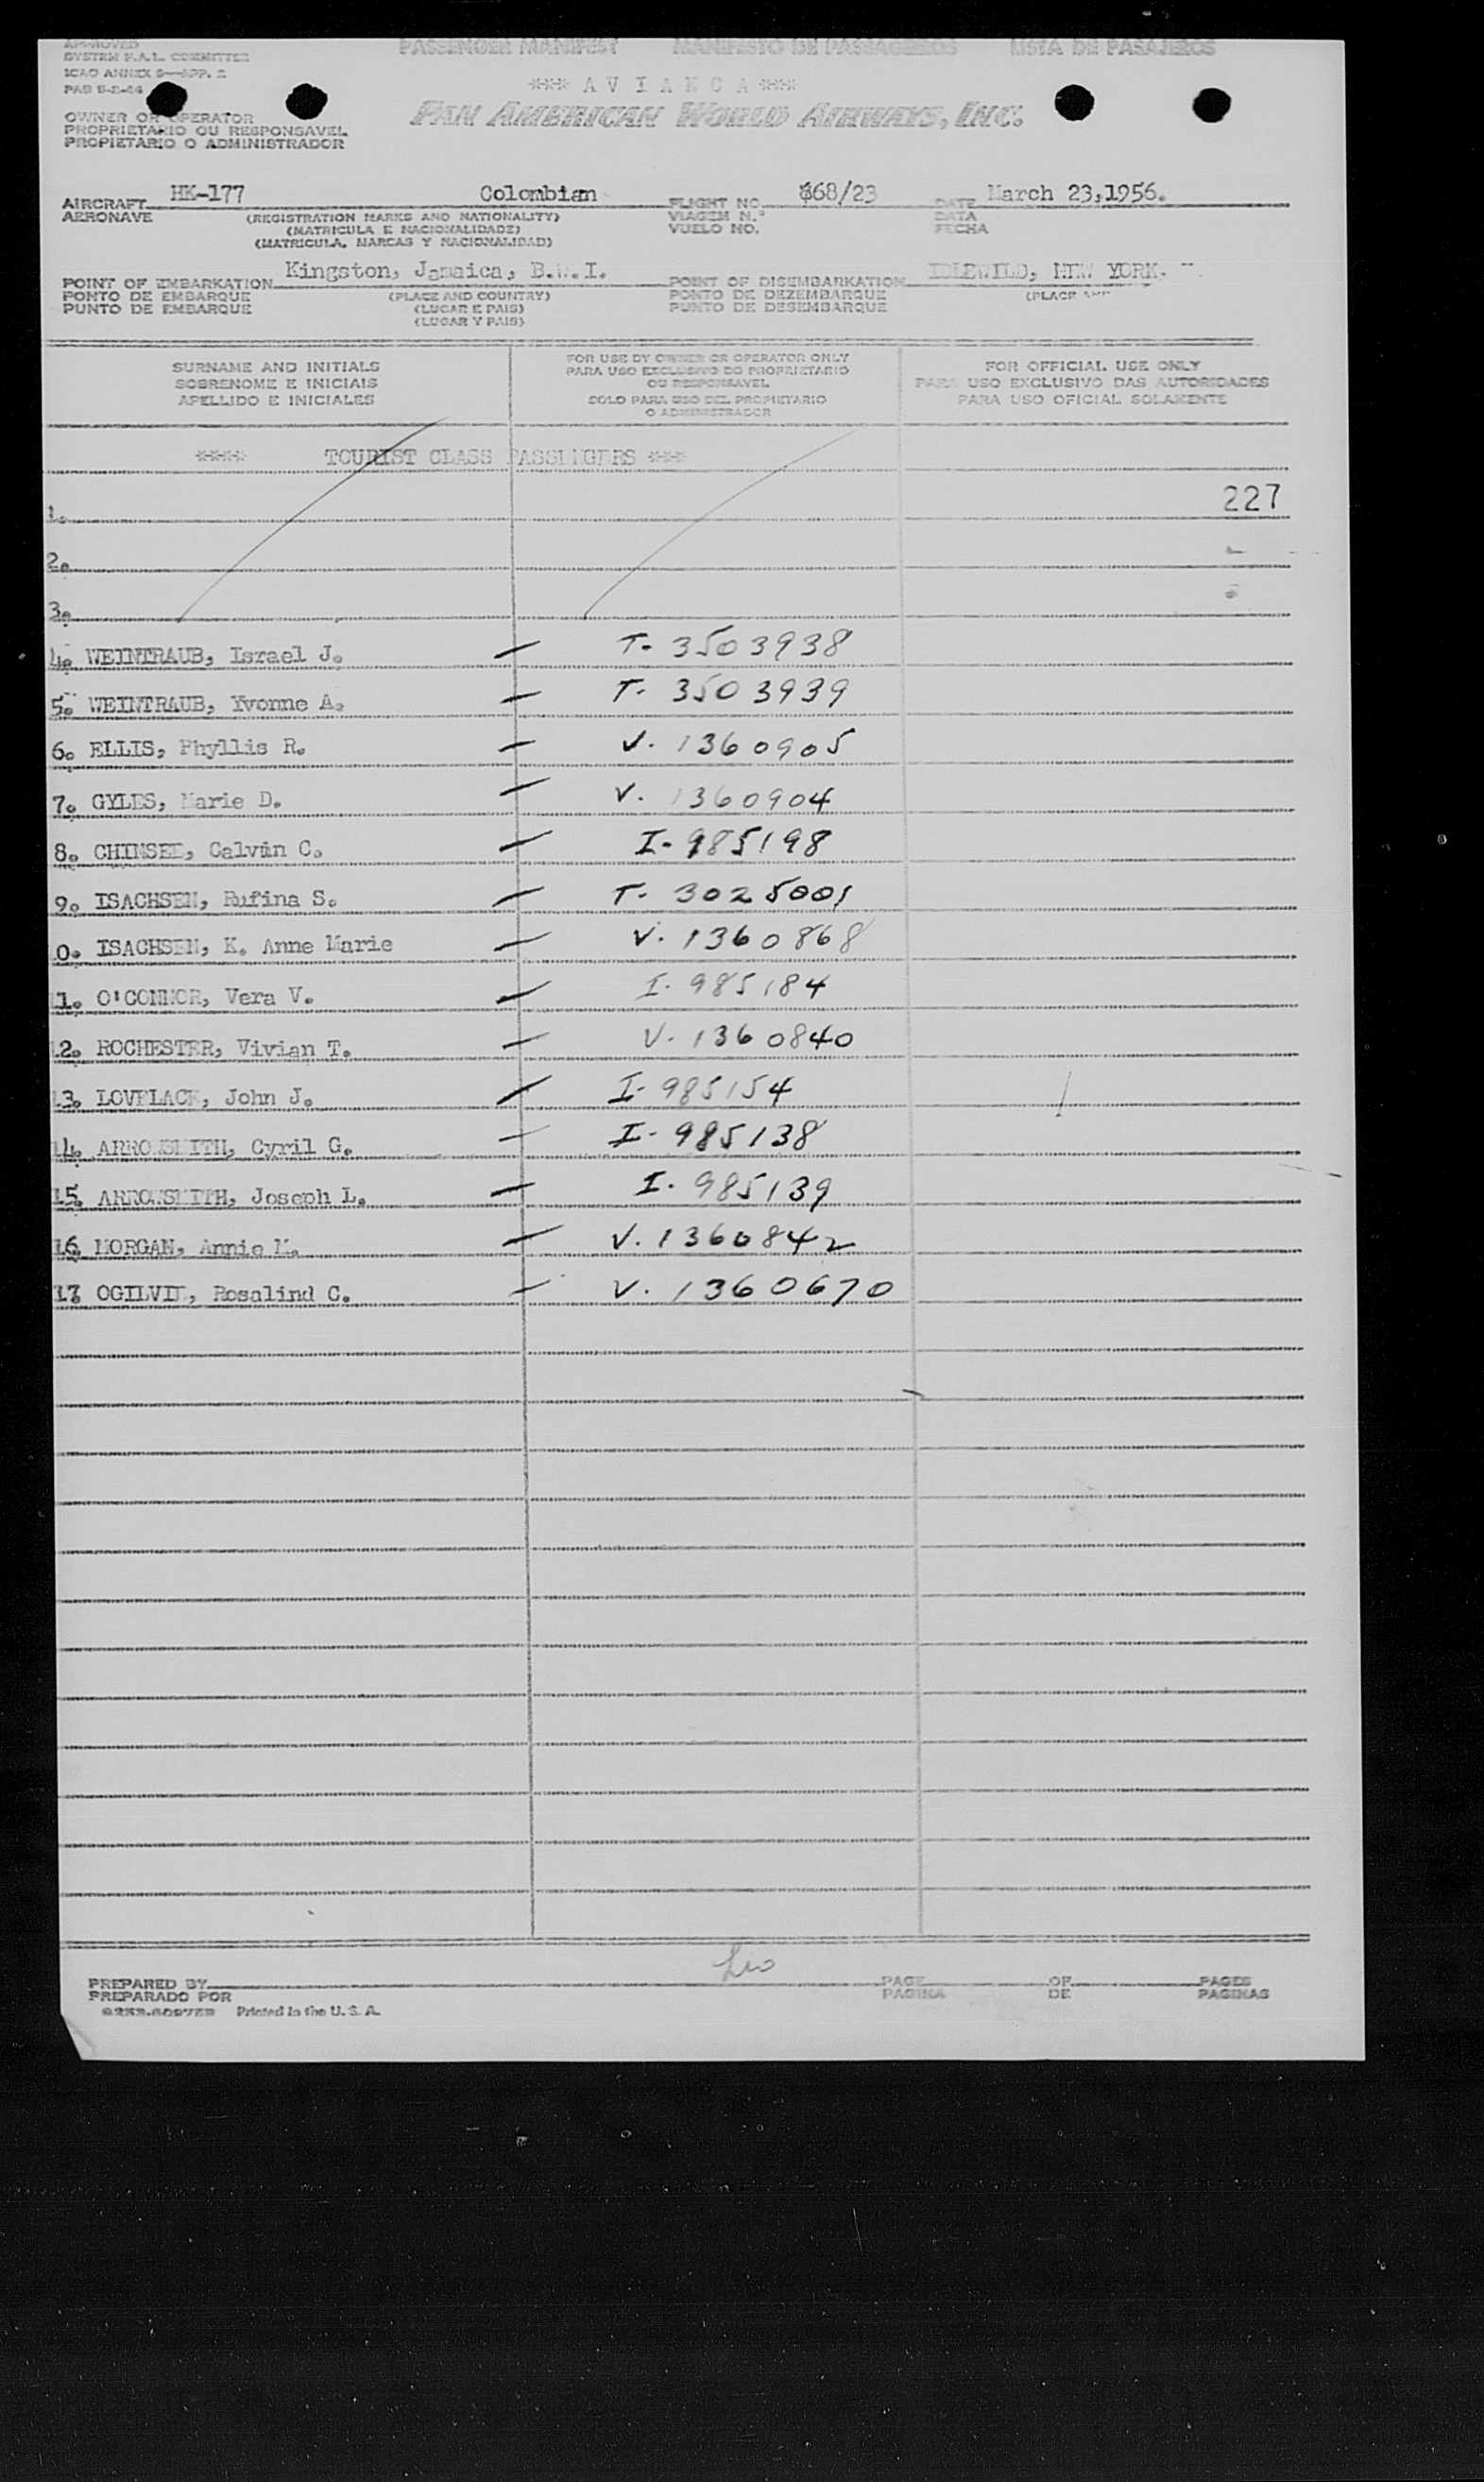 APPROVED
SYSTEM F.A.L. COMMITTEE
ICAO ANNEX 9—APP. 2
PAB 5-2-46
PASSENGER MANIFEST MANIFESTO DE PASSAGEIROS LISTA DE PASAJEROS
*** A V I A N C A ***
PAN AMERICAN WORLD AIRWAYS, INC.
OWNER OR OPERATOR
PROPRIETARIO OU RESPONSAVEL
PROPIETARIO O ADMINISTRADOR
AIRCRAFT HK-177 Colombian FLIGHT NO. 668/23 DATE March 23,1956.
AERONAVE (REGISTRATION MARKS AND NATIONALITY) VIAGEM N.º DATA
(MATRICULA E NACIONALIDADE) VUELO NO. FECHA
(MATRICULA, MARCAS Y NACIONALIDAD)
POINT OF EMBARKATION Kingston, Jamaica, B.W.I. POINT OF DISEMBARKATION IDLEWILD, NEW YORK.
PONTO DE EMBARQUE (PLACE AND COUNTRY) PONTO DE DEZEMBARQUE (PLACE
PUNTO DE EMBARQUE (LUGAR E PAIS) PUNTO DE DESEMBARQUE
(LUGAR Y PAIS)
SURNAME AND INITIALS
SOBRENOME E INICIAIS
APELLIDO E INICIALES
FOR USE BY OWNER OR OPERATOR ONLY
PARA USO EXCLUSIVO DO PROPRIETARIO
OU RESPONSAVEL
SOLO PARA USO DEL PROPIETARIO
O ADMINISTRADOR
FOR OFFICIAL USE ONLY
PARA USO EXCLUSIVO DAS AUTORIDADES
PARA USO OFICIAL SOLAMENTE
**** TOURIST CLASS PASSENGERS ***
1. 227
2.
3.
4. WEINTRAUB, Israel J. — T. 3503938
5. WEINTRAUB, Yvonne A. — T. 3503939
6. ELLIS, Phyllis R. — V. 1360905
7. GYLES, Marie D. — V. 1360904
8. CHINSEE, Calvin C. — I. 985198
9. ISACHSEN, Rufina S. — T. 3025001
0. ISACHSEN, K. Anne Marie — V. 1360868
11. O'CONNOR, Vera V. — I. 985184
12. ROCHESTER, Vivian T. — V. 1360840
13. LOVELACE, John J. — I. 985154
14. ARROWSMITH, Cyril G. — I. 985138
15. ARROWSMITH, Joseph L. — I. 985139
16. MORGAN, Annie M. — V. 1360842
17. OGILVIE, Rosalind C. — V. 1360670
PREPARED BY PAGE OF PAGES
PREPARADO POR PAGINA DE PAGINAS
Printed in the U. S. A.